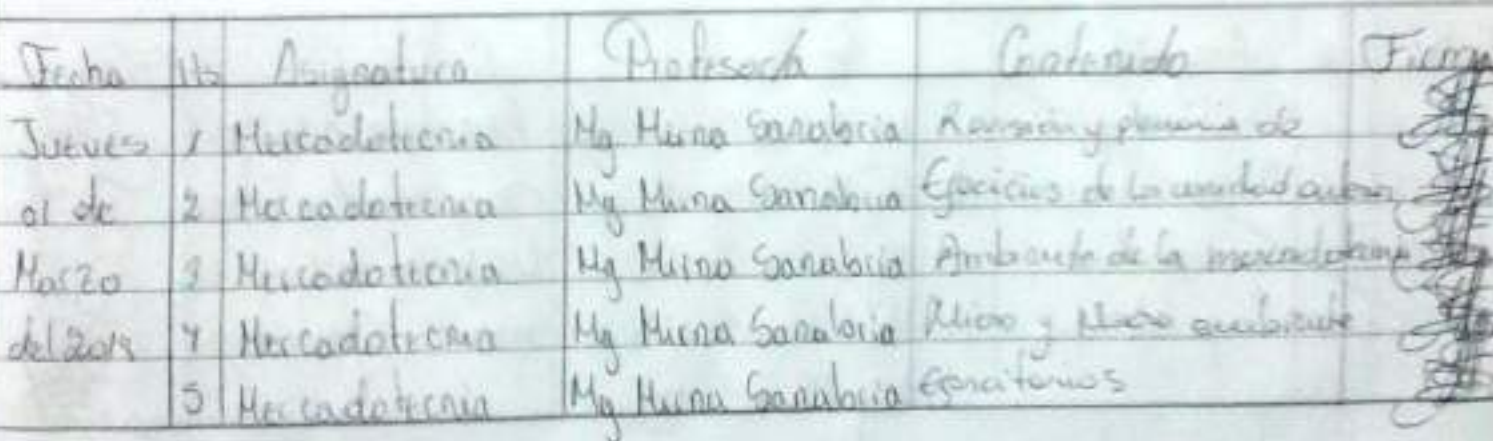 Fecha Hs Asignatura Profesor/a Contenido Firma
Jueves 1 Mercadotecnia Mg Mirna Sanabria Revisión y plenaria de
01 de 2 Mercadotecnia Mg Mirna Sanabria Ejercicios de la unidad
Marzo 3 Mercadotecnia Mg Mirna Sanabria Ambiente de la mercadotecnia
del 4 Mercadotecnia Mg Mirna Sanabria Micro y Macro ambiente
5 Mercadotecnia Mg Mirna Sanabria Ejercitorios